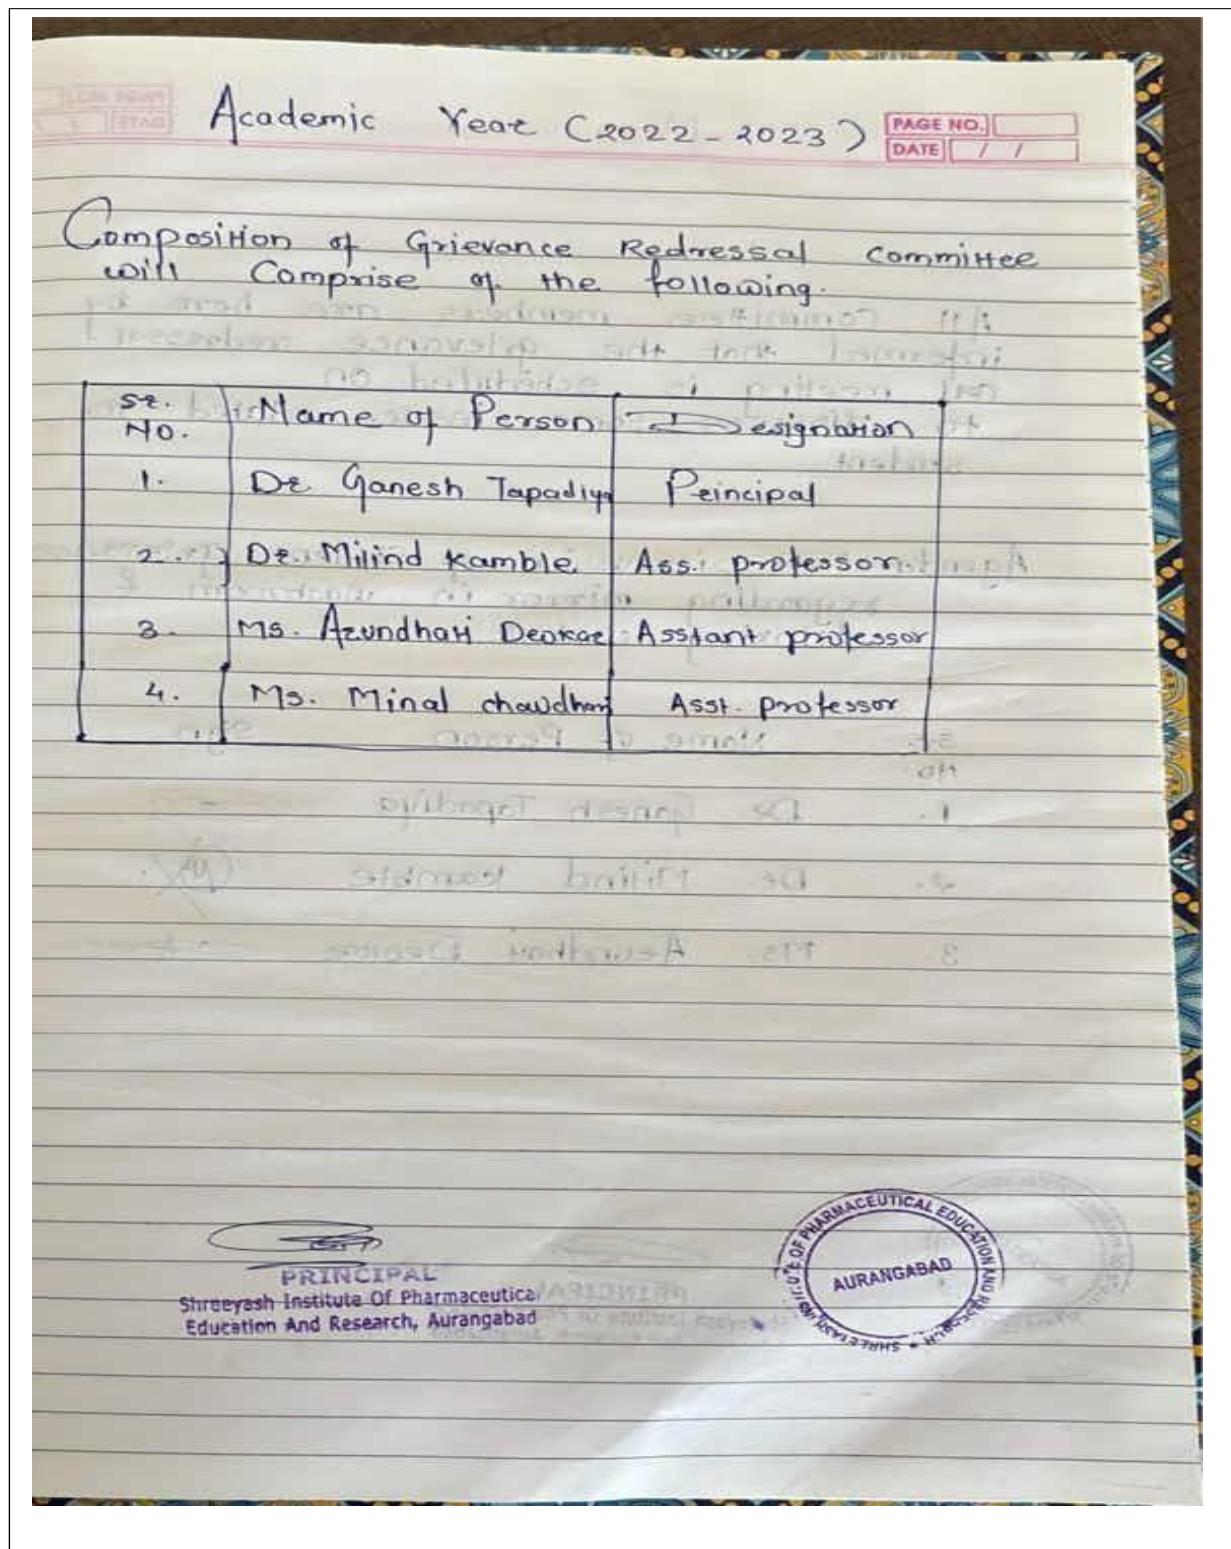 Academic Year (2022-2023)
PAGE NO.
DATE / /
Composition of Grievance Redressal Committee
will Comprise of the following.
Sr. No. Name of Person Designation
1. Dr Ganesh Tapadiya Principal
2. Dr. Milind Kamble Ass. professor
3. Ms. Arundhati Deokar Asstant professor
4. Ms. Minal chaudhari Asst. professor
PRINCIPAL
Shreeyash Institute Of Pharmaceutical
Education And Research, Aurangabad
SHREEYASH INSTITUTE OF PHARMACEUTICAL EDUCATION AND RESEARCH
AURANGABAD